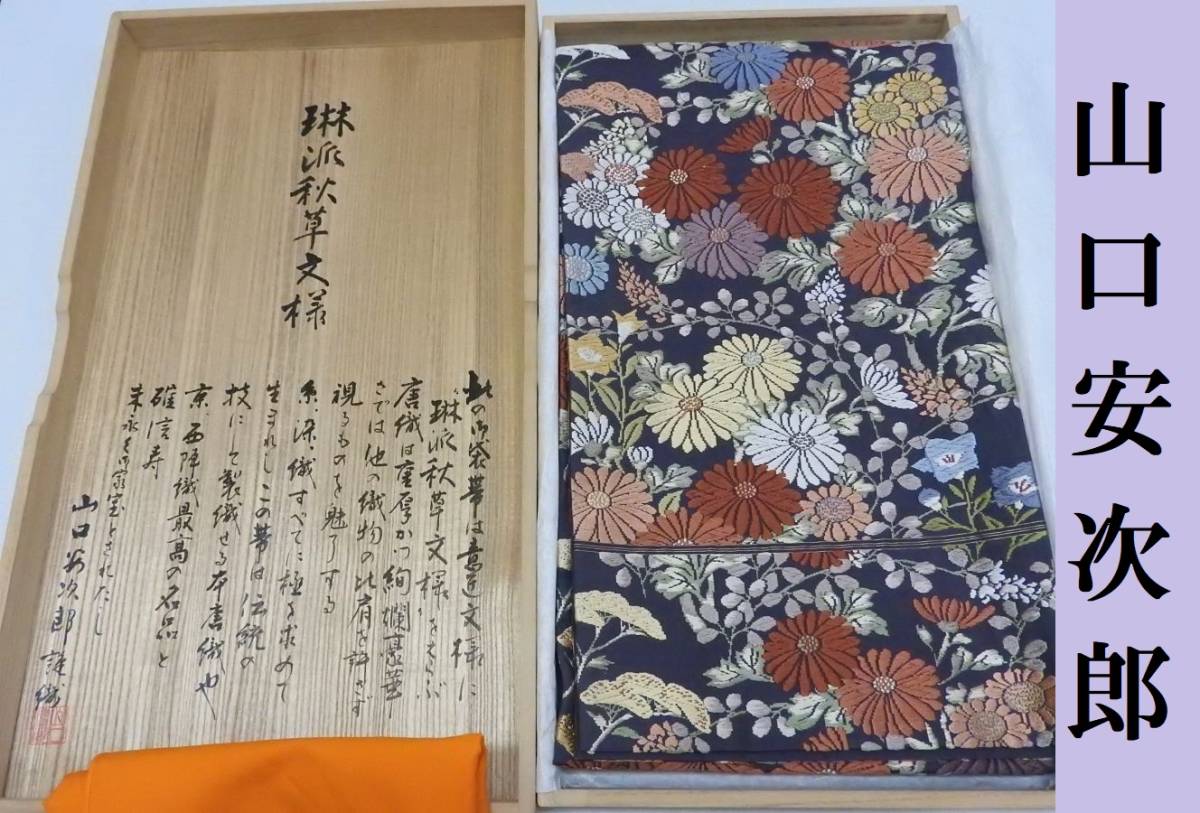 琳派秋草文様
此の御袋帯は意匠文様に
琳派秋草文様をえらぶ
唐織は重厚かつ絢爛豪華
さでは他の織物の比肩を許さず
視るものを魅了する
糸、染、織すべてに極を求めて
生まれしこの帯は伝統の
技にして製織せる本唐織也
京、西陣織最高の名品と
確信寿
末永く御家宝とされたし
山口安次郎 謹織
山口安次郎